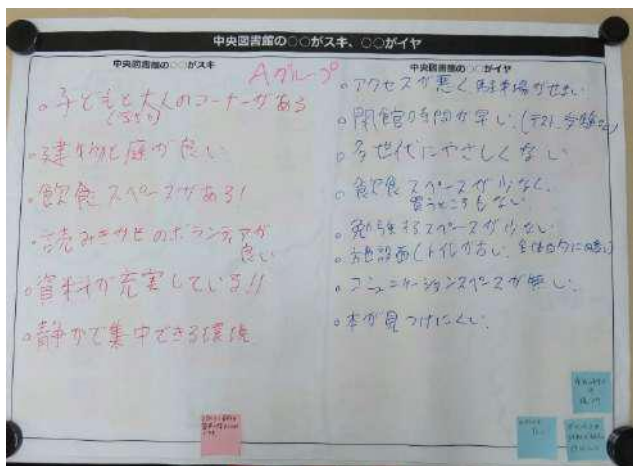 中央図書館の○○がスキ、○○がイヤ
中央図書館の○○がスキ
Aグループ
○子どもと大人のコーナーがある
○建物と庭が良い
○飲食スペースがある!
○読みきかせのボランティアが
良い
○資料が充実している!!
○静かで集中できる環境
中央図書館の○○がイヤ
○アクセスが悪く駐車場がせまい
○閉館時間が早い(テスト、受験など)
○多世代にやさしくない
○飲食スペースが少なく、
買うところもない
○勉強するスペースが少ない
○施設面(トイレが古い、全体的に暗い)
○コミュニケーションスペースが無い
○本が見つけにくい